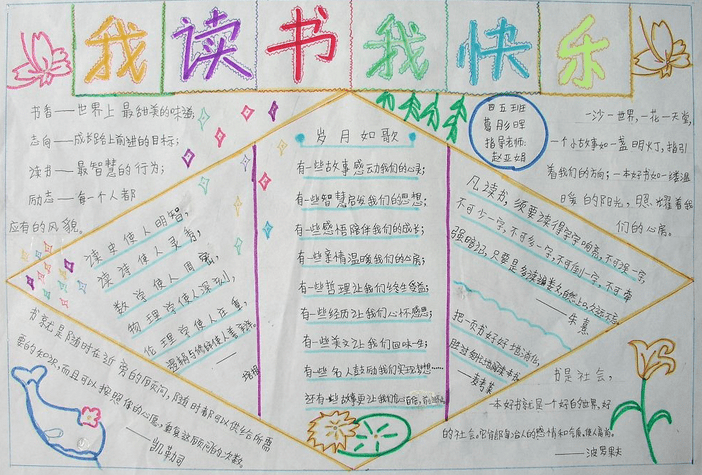 我读书我快乐
书香——世界上最甜美的味道;
志向——成长路上前进的目标;
读书——最智慧的行为;
励志——每一个人都
应有的风貌。
四五班
葛彤晖
指导老师:
赵亚娟
一沙一世界,一花一天堂,
一个小故事如一盏明灯,指引
着我们的方向;一本好书如一缕温
暖的阳光,照耀着我
们的心房。
读史使人明智,
读诗使人灵秀,
数学使人周密,
物理学使人深刻,
伦理学使人庄重,
逻辑与修辞使人善辩。
——培根
岁月如歌
有一些故事感动我们的心灵;
有一些智慧启发我们的思想;
有一些感悟陪伴我们的成长;
有一些亲情温暖我们的心房;
有一些哲理让我们终生受益;
有一些经历让我们心怀感恩;
有一些美文让我们回味一生;
有一些名人鼓励我们实现梦想……
还有一些故事更让我们
凡读书,须要读得字字响亮,不可误一字,
不可少一字,不可多一字,不可倒一字,不可牵
强暗记,只要是多读遍数,自然上口,久远不忘。
——朱熹
把一页书好好地消化,
胜过匆忙地阅读一本书。
——麦考莱
书就是随时在近旁的顾问,随时都可以供给你所需
要的知识,而且可以按照你的心愿,重复这顾问的次数。
——凯勒司
书是社会,
一本好书就是一个好的世界,好
的社会。它能陶冶人的感情和气质,使人高尚。
——波罗果夫